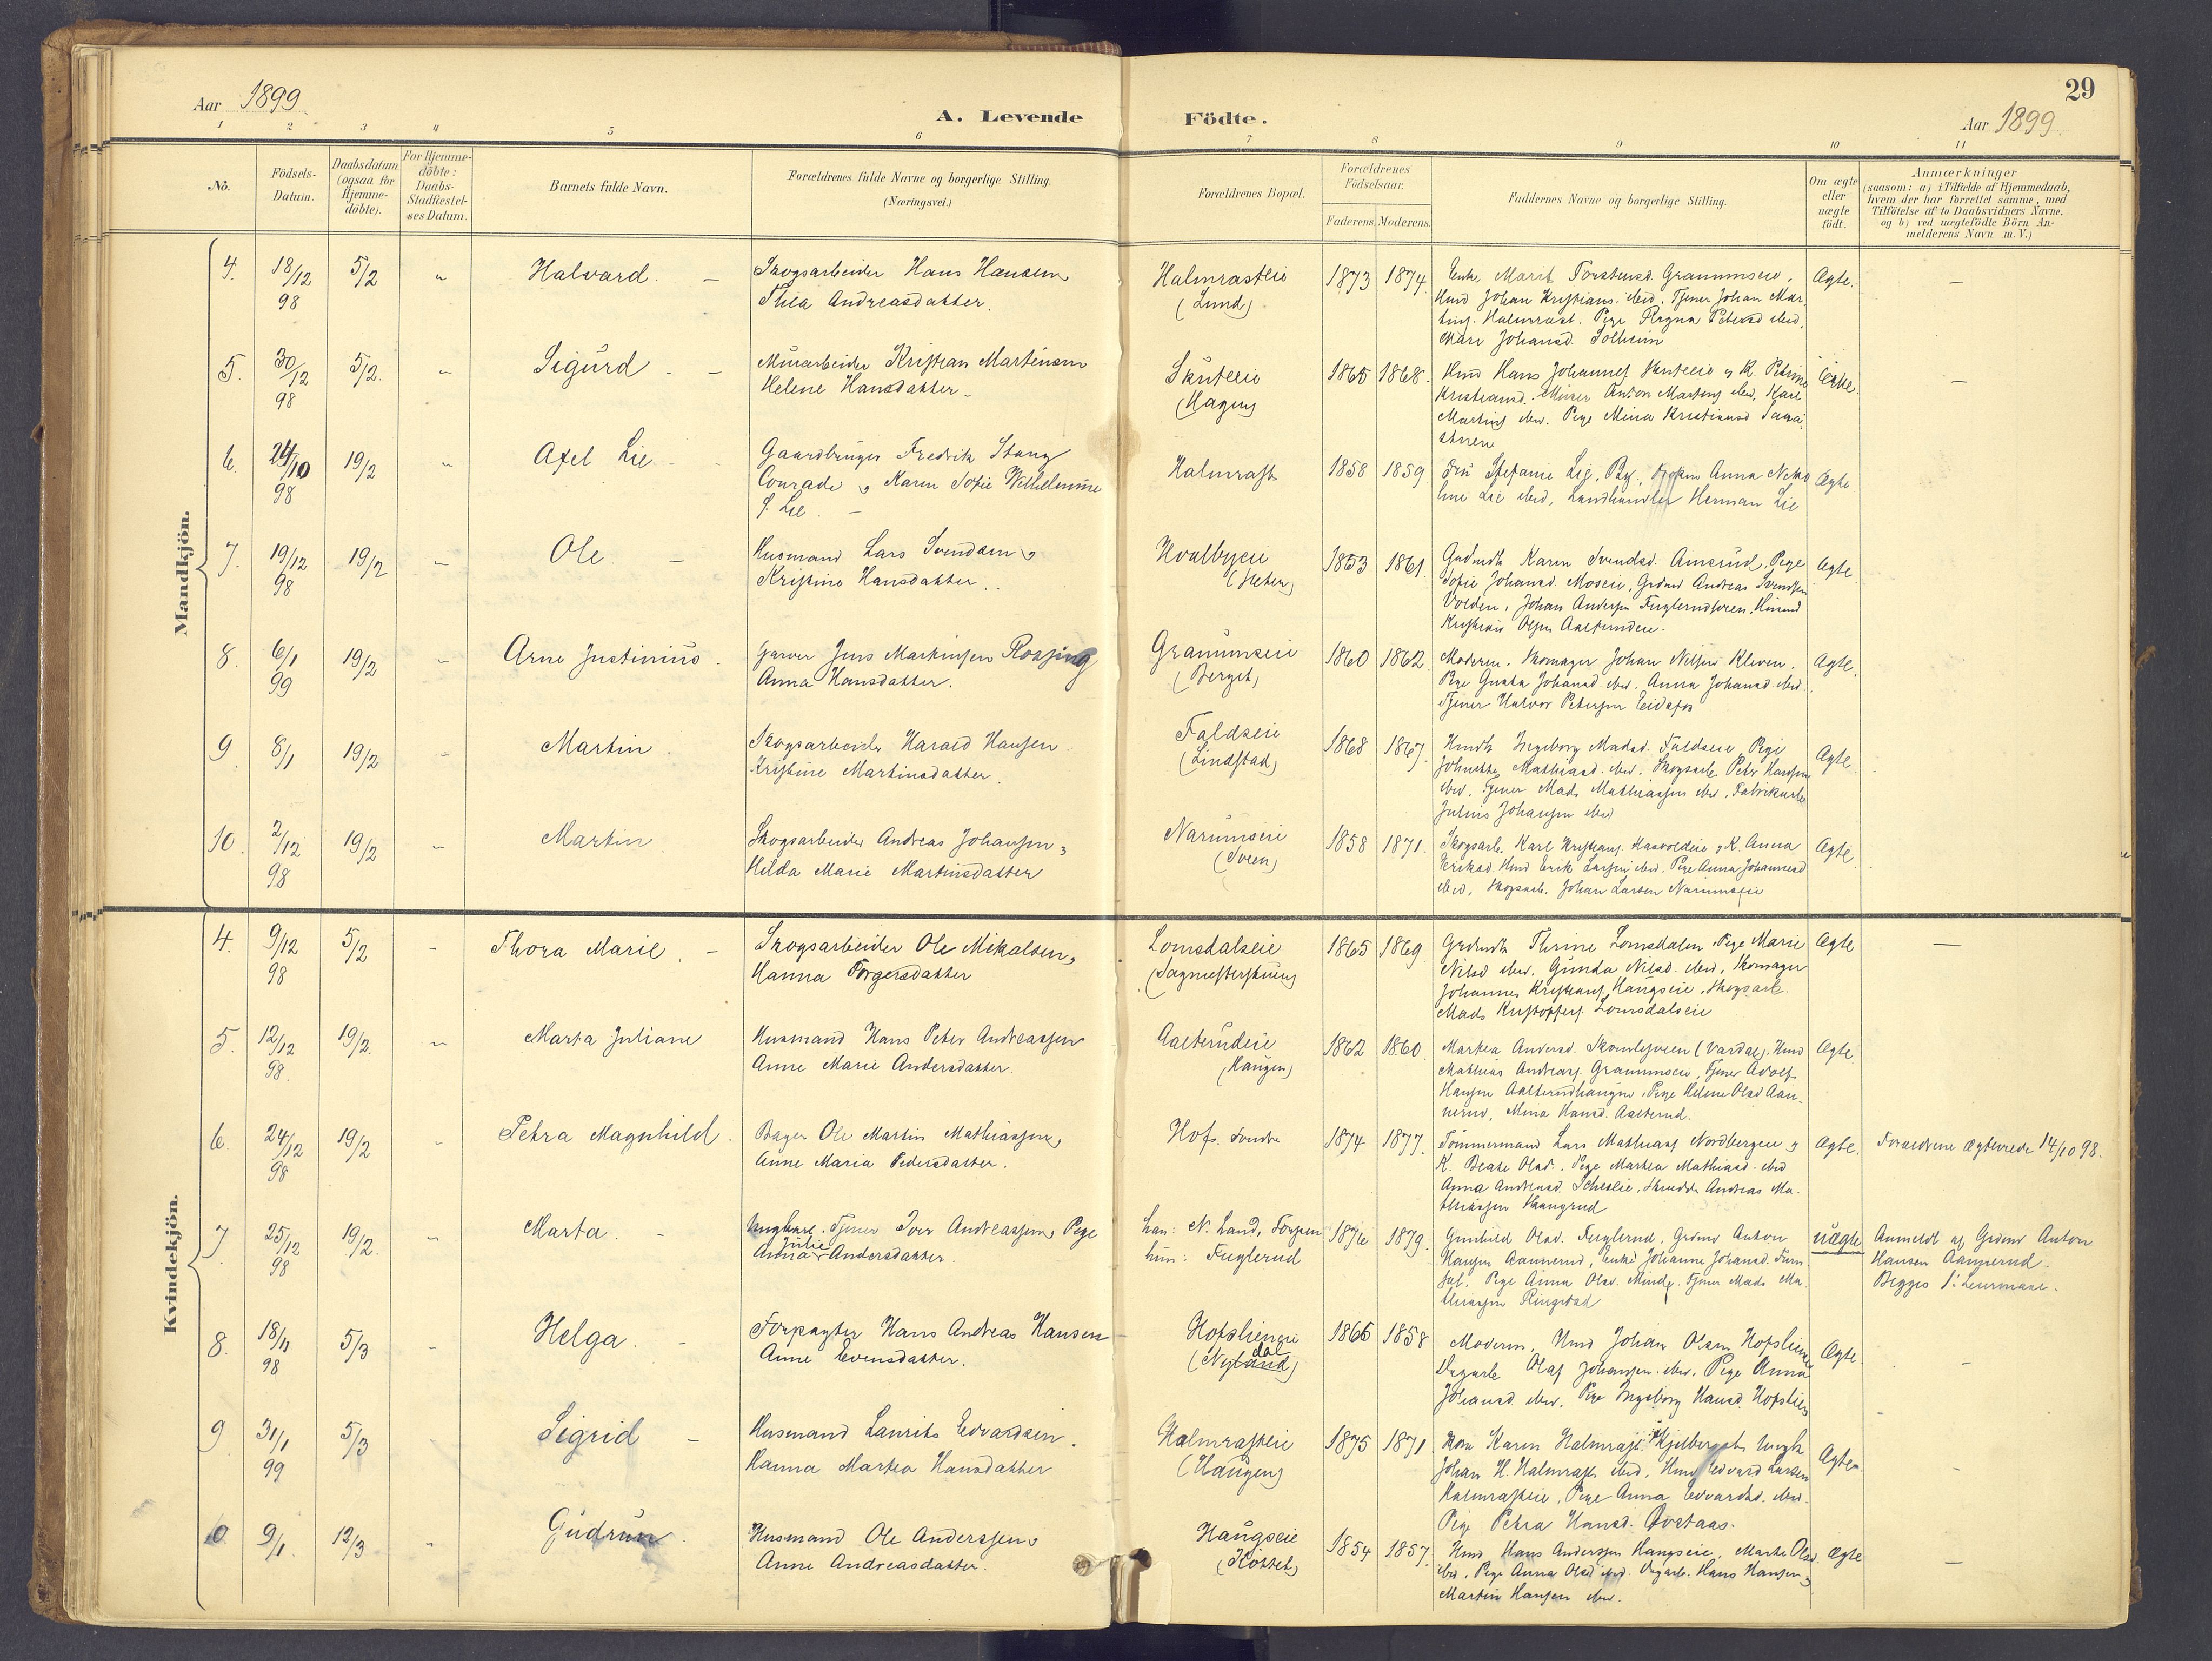 29
Aar 1899
A. Levende Födte.
Aar 1899
1 2 3 4 5 6 7 8 9 10 11
No.
Födsels-Datum.
Daabsdatum (ogsaa for Hjemme-döbte).
For Hjemme-döbte: Daabs-Stadfæstel-ses Datum.
Barnets fulde Navn.
Forældrenes fulde Navne og borgerlige Stilling.
(Næringsvei.)
Forældrenes Bopæl.
Forældrenes Födselsaar.
Faderens. Moderens.
Faddernes Navne og borgerlige Stilling.
Om ægte eller uægte födt.
Anmærkninger
(saasom: a) i Tilfælde af Hjemmedaab,
hvem der har forrettet samme, med
Tilföielse af to Daabsvidners Navne.
og b) ved uægtefödte Börn An-
melderens Navn m. V.)
Mandkjön.
4. 18/12 98 5/2 " Halvard. Skogsarbeider Hans Hansen
Thea Andreasdatter.
Halmrasteie (Lund) 1873 1874
Enke Marit Torstensd. Granumseie,
Hmd Johan Kristians. ibid. Tjener Johan Mar-
tins. Halmrast. Pige Ragna Petersd ibid.
Mari Johansd. Solheim
Ægte. —
5. 30/12 98 5/2. " Sigurd Murarbeider Kristian Martinsen
Helene Hansdatter
Skuteeie (Hagen) 1865 1868.
Hmd Hans Johannes. Skuteeie og K. Petrine
Kristiansd. Murer Anton Martins. ibid, Karl
Martins ibid. Pige Mina Kristiansd
Ægte —
6. 24/10 98 19/2 " Axel Lie Gaardbruger Fredrik Stang
Conradi og Karen Sofie Wilhelmine
S. Lie.
Halmrast 1858 1859
Fru Stefanie Lie, Frøken Anna
Lie ibid, Landhandler Herman Lie
Ægte
7. 19/12 98 19/2 " Ole Husmand Lars Svendsen og
Kristine Hansdatter.
Hvalbyeie 1853 1861
Gaardmdk Karen Svendsd. Amsrud, Pige
Sofie Johansd. Moseie, Grdmd Andreas Svendsen
Volden, Johan Andersen Fuglerudsveen, Husmd
Kristian Olsen Aalterudeie.
Ægte
8. 6/1 99 19/2 " Arne Justinius. Garver Jens Martinsen Rossing
Anna Hansdatter.
Granumseie (Berget) 1860 1862.
Moderen. Skomager Johan Nilsen Kleven.
Pige Gunda Johansd. ibid. Anna Johansd. ibid.
Tjener Halvor Petersen Eidsfos
Ægte.
9 8/1 19/2 " Martin. Skogsarbeider Harald Hansen.
Kristine Martinsdatter.
Faldseie (Lindstad) 1868 1867.
Hmdk Ingeborg Madsd. Faldseie, Pige
Johnette Mathiasd. ibid. Skogsarb. Peter Hansen
ibid. Tjener Mads Mathiassen ibid, Fabrikarb.
Julius Johansen ibid
Ægte.
10. 2/12 98 19/2 " Martin Skogsarbeider Andreas Johansen,
Hilda Marie Martinsdatter
Narumseie (Sveen) 1858 1871.
Skogsarb. Karl Kristians. og K. Anna
Eriksd. Hmd Erik Larsen ibid. Pige Anna Johannesd
ibid, Skogsarb. Johan Larsen Narumseie
Ægte
Kvindekjön.
4. 9/12 98 5/2 " Thora Marie. Skogsarbeider Ole Mikalsen,
Hanna Torgersdatter
Lomsdalseie (Sagmesterstuen) 1865 1869
Grdmdk Thrine Lomsdalen. Pige Marie
Nilsd ibid. Gunda Nilsd. ibid, Skomager
Johannes Kristians. Haugseie. Skogsarb.
Mads Kristoffers. Lomsdalseie
Ægte —
5. 12/12 98. 19/2. " Marta Juliane Husmand Hans Peter Andreassen
Anne Marie Andersdatter.
Aalterudeie (Haugen) 1862 1860.
Martea Andersd. (Vardal). Hmd
Mathias Andreass. Granumseie, Tjener Adolf
Hansen Aalterudhaugen, Pige Helene Olsd Aan-
nerud, Mina Hansd. Aalterud.
Ægte
6. 24/12 98 19/2 " Petra Magnhild. Bager Ole Martin Mathiassen
Anne Maria Pedersdatter.
Hof. søndre 1874 1877.
Tømmermand Lars Mathiass Nordbergeie og
K. Beate Olsd., Pige Martea Mathiasd. ibid
Anna Andreasd. Skrædder Andreas Ma-
thiassen Haangrud
Ægte. Forældrene ægteviede 14/10 98.
7 25/12 98 19/2. " Marta. Ungkarl. Tjener Iver Andreassen, Pige
Anna Julie Andersdatter.
han: N. Land, Torpen
hun: Fuglerud 1876 1879.
Gunhild Olsd. Fuglerud, Grdmd Anton
Hansen Aannerud, Enke Johanne Johansd.
Pige Anna Olsd. Tjener Mads Ma-
thiassen Ringstad
uægte Anmeldt af Grdmd Anton
Hansen Aannerud.
Begges 1. Leiermaal.
8. 18/11 98 5/3 " Helga. Forpagter Hans Andreas Hansen
Anne Evensdatter.
Hofslieneie (Nydal) 1866 1858
Moderen. Hmd Johan Olsen Hofslieneie
Dagarb Olaf Johansen ibid. Pige Anna
Johansd. ibid. Pige Ingeborg Hansd. Hofslien
Ægte. —
9 31/1 99 5/3 " Sigrid Husmand Laurits Edvardsen.
Hanna Martea Hansdatter
Halmrasteie (Haugen) 1875 1871
Kone Karen Halmrast. Ungk
Johan H. Halmrast ibid, Hmd Edvard Larsen
Halmrasteie, Pige Anna Edvardsd. ibid.
Pige Petra Hansd.
Ægte
10. 9/1. 12/3 " Gudrun. Husmand Ole Anderssen og
Anne Andreasdatter.
Haugseie 1854 1857.
Hmd Hans Anderssen Haugseie, Marte Olsd.
ibid. Pige Anna Olsd ibid. Ungarb. Hans Hansen og
Martin Hansen ibid.
Ægte —